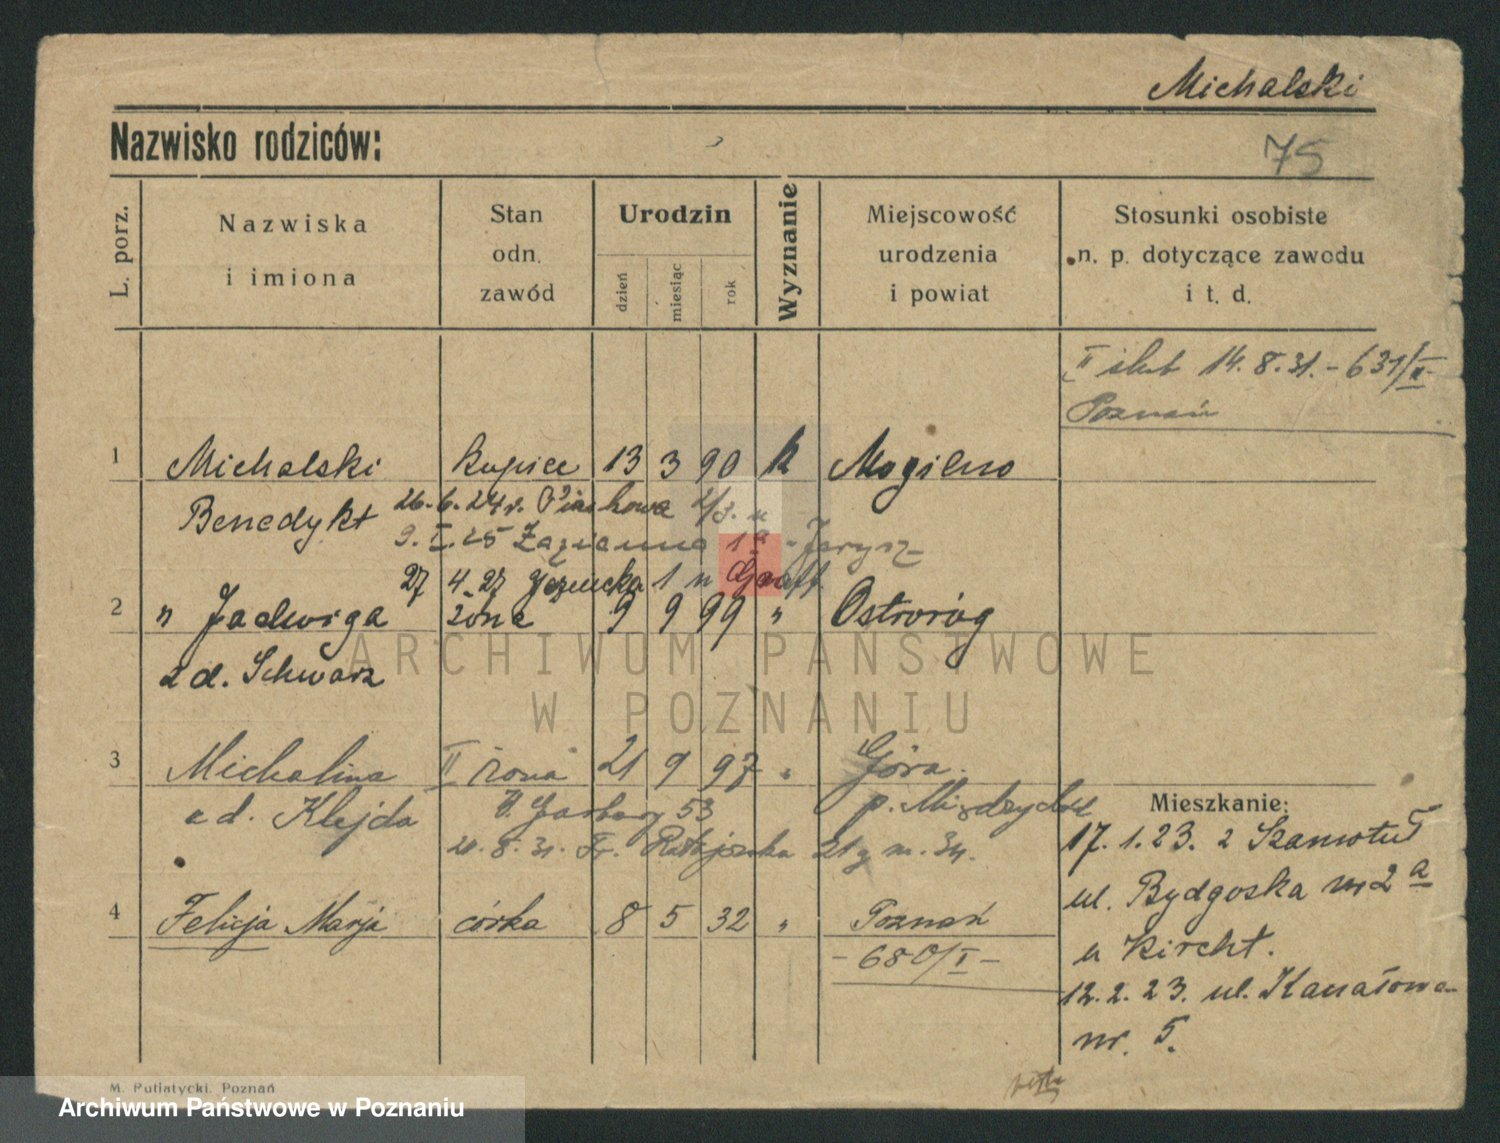 Michalski
Nazwisko rodziców:
75
L. porz.
Nazwiska
i imiona
Stan
odn.
zawód
Urodzin
dzień
miesiąc
rok
Wyznanie
Miejscowość
urodzenia
i powiat
Stosunki osobiste
n. p. dotyczące zawodu
i t. d.
II ślub 14.8.31. - 631/II
Poznań
1 Michalski kupiec 13 3 90 k Mogilno
Benedykt 26.6.24 r.
9. I. 25 1a
27 4.27 1 n
2 " Jadwiga żona 9 9 99 " Ostroróg
z d. Schwarz
3 Michalina II żona 21 9 97 " Góra.
z d. Klejda W. Garbary 53 p. Międzychód
20.8.31. Fr. Ratajczaka 21 m. 34.
4 Felicja Marja córka 8 5 32 " Poznań
- 680/I -
Mieszkanie:
17. 1. 23. z Szamotuł
ul. Bydgoska nr 2a
u Kircht.
12. 2. 23. ul. Kanałowa
nr. 5.
M. Putiatycki, Poznań
ARCHIWUM PAŃSTWOWE
W POZNANIU
Archiwum Państwowe w Poznaniu